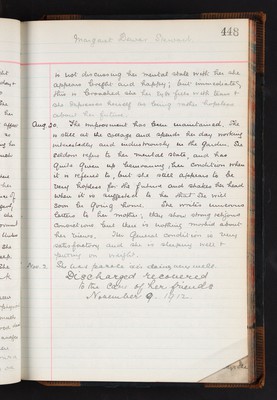 448
Margaret Stewart
is not discussing her mental state with her she
appears bright and happy; but immediately
this is broached she her eyes fill with tears &
she expresses herself as being rather hopeless
about her future.
Aug 30. The improvement has been maintained. She
is still at the cottage and spends her day working
interestedly and industriously in the garden. She
seldom refers to her mental state, and has
quite given up bemoaning her condition when
it is referred to, but she still appears to be
very hopeless for the future and shakes her head
when it is suggested to her that she will
soon be going home. She writes numerous
letters to her mother; they show strong religious
convictions but there is nothing morbid about
her views. The general condition is very
satisfactory and she is sleeping well &
putting on weight.
Nov. 2. She was parole and is doing very well.
Discharged recovered
to the care of her friends
November 9. 1912.